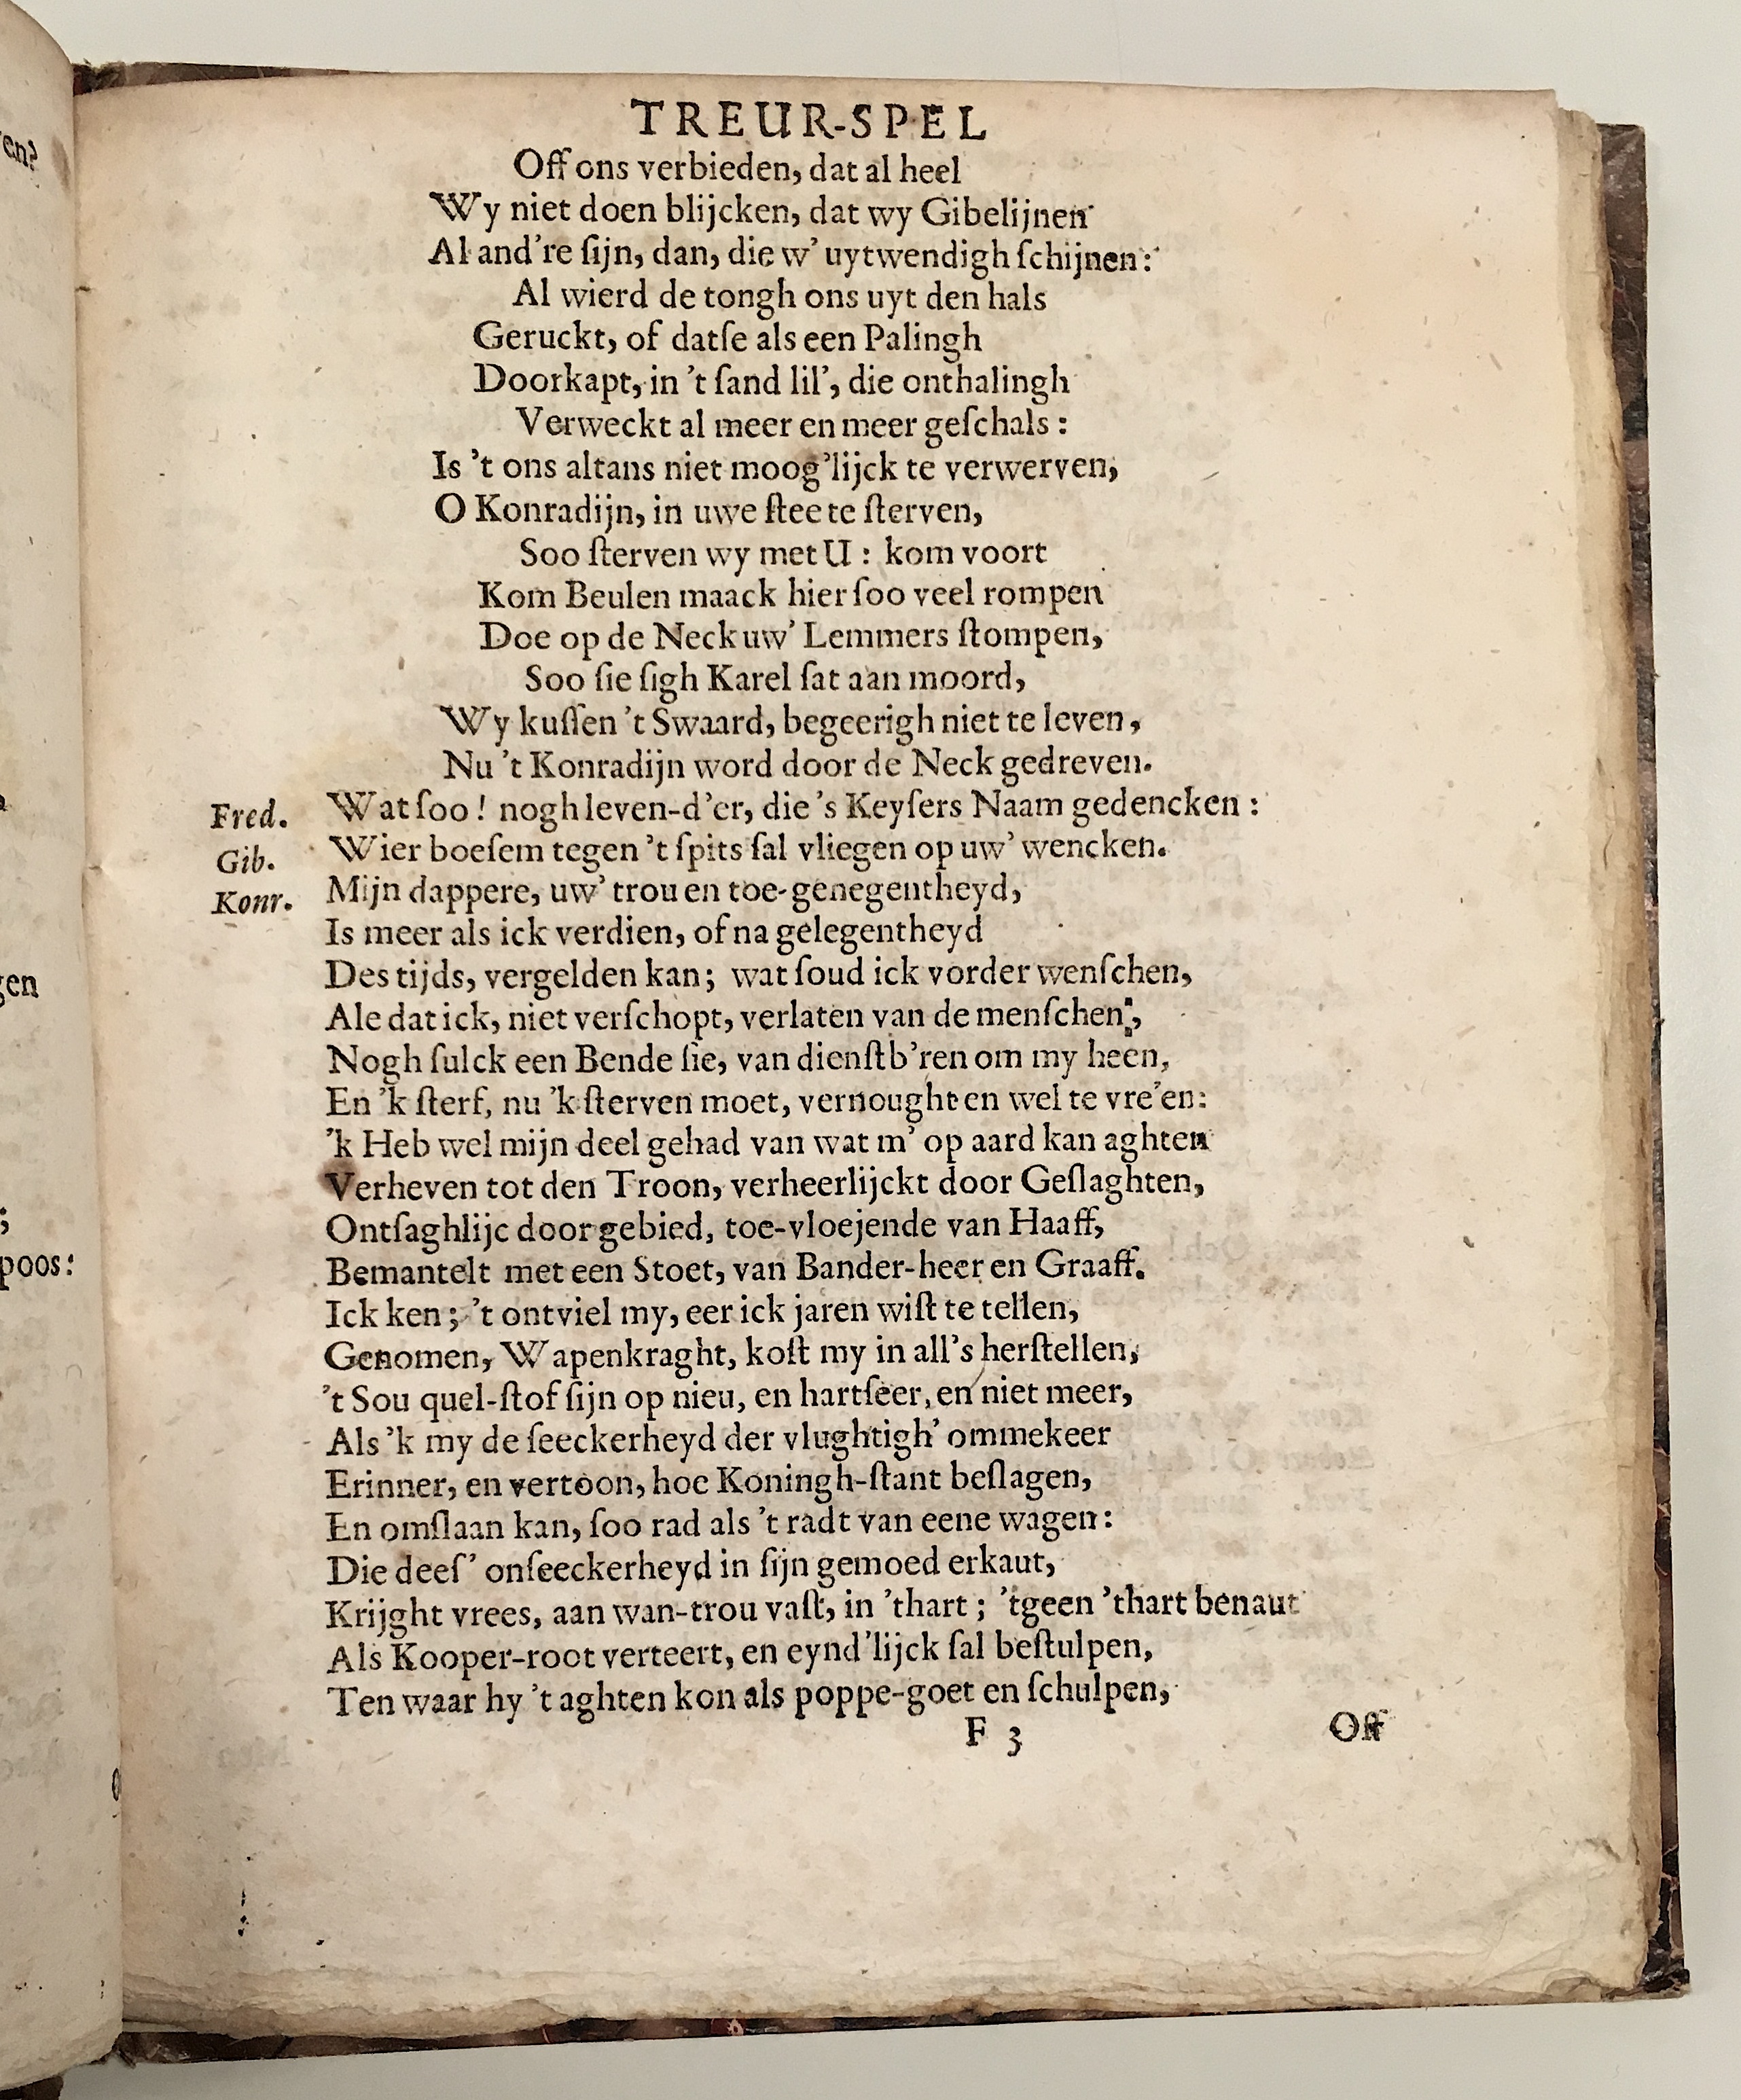 TREUR-SPEL
Off ons verbieden, dat al heel
Wy niet doen blijcken, dat wy Gibelijnen
Al and’re ſijn, dan, die w’ uytwendigh ſchijnen:
Al wierd de tongh ons uyt den hals
Geruckt, of datſe als een Palingh
Doorkapt, in ’t ſand lil’, die onthalingh
Verweckt al meer en meer geſchals :
Is ’t ons altans niet moog’lijck te verwerven,
O Konradijn, in uwe ſtee te ſterven,
Soo ſterven wy met U : kom voort
Kom Beulen maack hier ſoo veel rompen
Doe op de Neck uw’ Lemmers ſtompen,
Soo ſie ſigh Karel ſat aan moord,
Wy kuſſen ’t Swaard, begeerigh niet te leven,
Nu ’t Konradijn word door de Neck gedreven.
Fred. Wat ſoo ! nogh leven-d’er, die ’s Keyſers Naam gedencken :
Gib. Wier boeſem tegen ’t ſpits ſal vliegen op uw’ wencken.
Konr. Mijn dappere, uw’ trou en toe-genegentheyd,
Is meer als ick verdien, of na gelegentheyd
Des tijds, vergelden kan; wat ſoud ick vorder wenſchen,
Ale dat ick, niet verſchopt, verlaten van de menſchen,
Nogh ſulck een Bende ſie, van dienſtb’ren om my heen,
En ’k ſterf, nu ’k ſterven moet, vernought en wel te vre’en:
’k Heb wel mijn deel gehad van wat m’ op aard kan aghten
Verheven tot den Troon, verheerlijckt door Geſlaghten,
Ontſaghlijc door gebied, toe-vloejende van Haaff,
Bemantelt met een Stoet, van Bander-heer en Graaff.
Ick ken ; ’t ontviel my, eer ick jaren wiſt te tellen,
Genomen, Wapenkraght, koſt my in all’s herſtellen,
’t Sou quel-ſtof ſijn op nieu, en hartſeer, en niet meer,
Als ’k my de ſeeckerheyd der vlughtigh’ ommekeer
Erinner, en vertoon, hoe Koningh-ſtant beſlagen,
En omſlaan kan, ſoo rad als ’t radt van eene wagen:
Die deeſ’ onſeeckerheyd in ſijn gemoed erkaut,
Krijght vrees, aan wan-trou vaſt, in ’thart ; ’tgeen ’thart benaut
Als Kooper-root verteert, en eynd’lijck ſal beſtulpen,
Ten waar hy ’t aghten kon als poppe-goet en ſchulpen,
F 3
Off
en?
gen
;
poos: